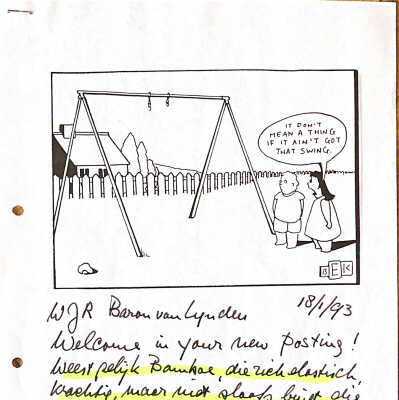 IT DON'T
MEAN A THING
IF IT AIN'T GOT
THAT SWING.
BEK
WJR Baron van Lynden 18/1/93
Welcome in your new posting!
Weest gelijk Bamboe, die zich elastisch,
krachtig, maar niet slaafs buigt die